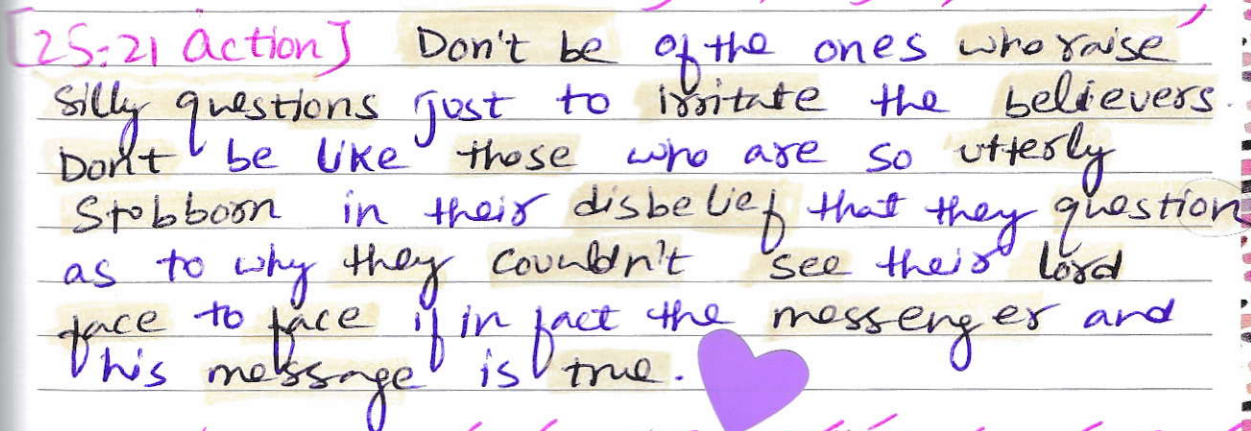 [25:21 Action] Don't be of the ones who raise
silly questions just to irritate the believers.
Don't be like those who are so utterly
Stobborn in their disbelief that they question
as to why they couldn't see their lord
face to face if in fact the messenger and
his message is true.